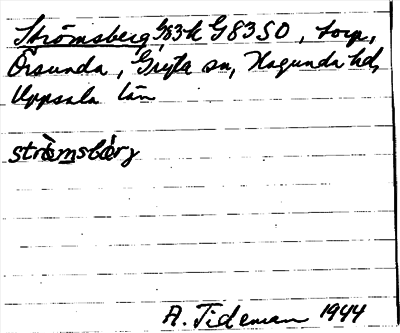 Strömsberg, G3k G83SO, torp,
Örsunda, Gryta sn, Hagunda hd,
Uppsala län
strömsbärj
A. Tideman 1944